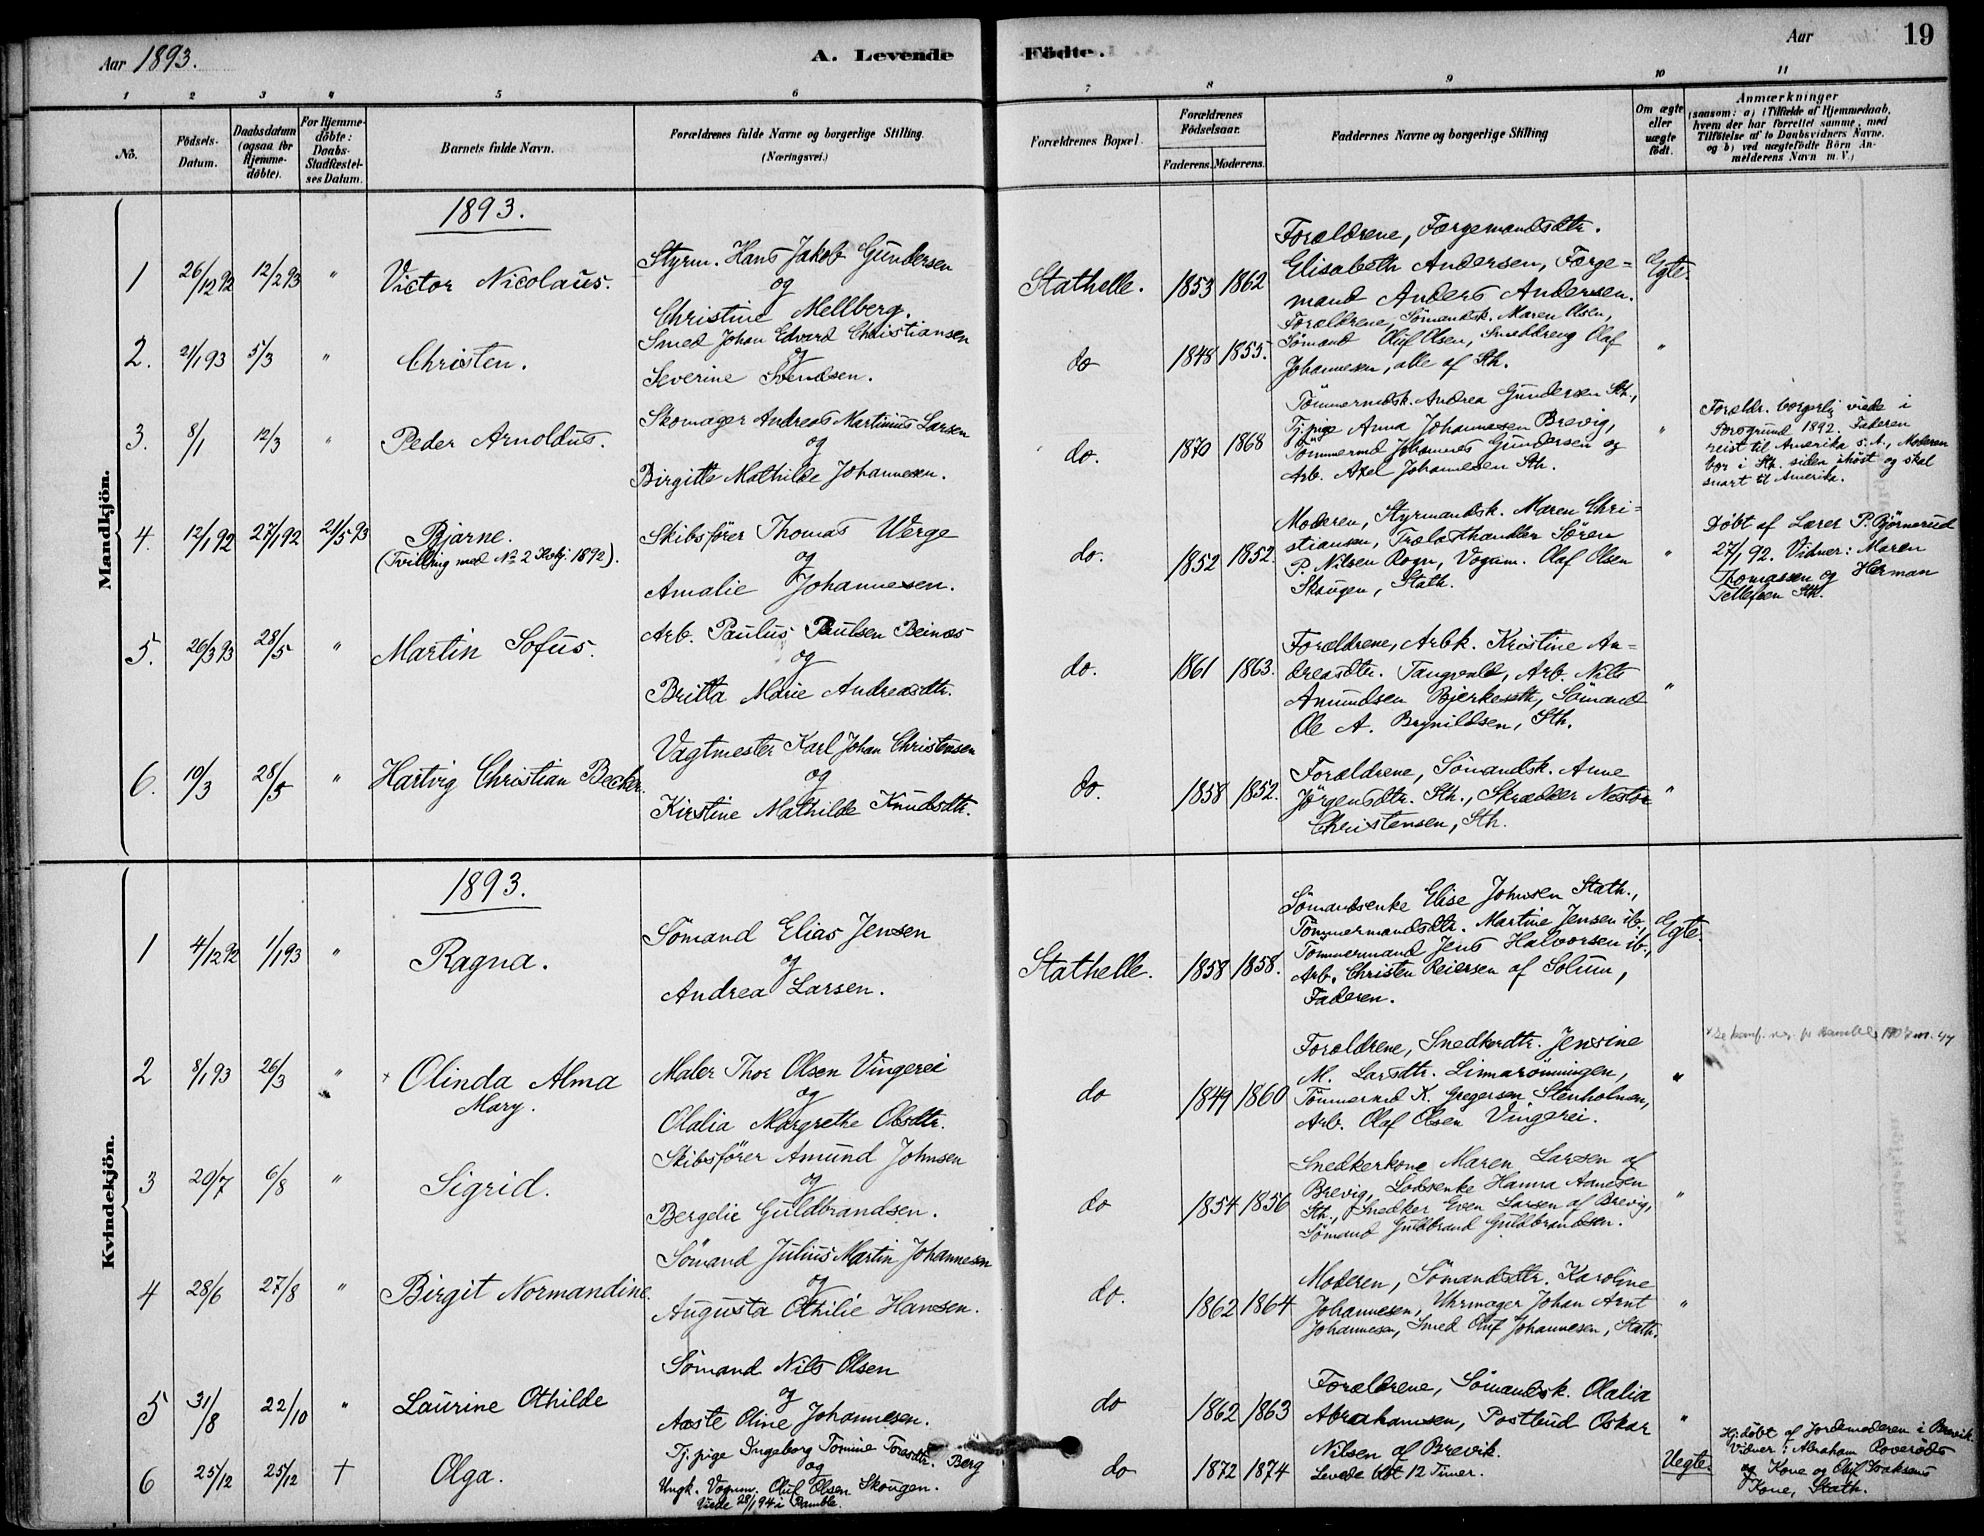 Aar 1893.
A. Levende Födte.
Aar
19
1 2 3 4 5 6 7 8 9 10 11
No.
Födsels-Datum.
Daabsdatum (ogsaa for Hjemme-döbte).
For Hjemme-döbte: Daabs-Stadfæstel-ses Datum.
Barnets fulde Navn.
Forældrenes fulde Navne og borgerlige Stilling. (Næringsvei.)
Forældrenes Bopæl.
Forældrenes Födselsaar.
Faderens. Moderens.
Faddernes Navne og borgerlige Stilling
Om ægte eller uægte födt.
Anmærkninger
(saasom: a) i Tilfælde af Hjemmedaab, hvem der har forrettet samme, med Tilföielse af to Daabsvidners Navne. og b) ved uægtefödte Börn Anmelderens Navn m. V.)
Mandkjön.
1893.
1 26/12 92 12/2 93 " Victor Nicolaus.
Styrm. Hans Jakob Gundersen
og
Christine Mellberg.
Stathelle. 1853 1862
Forældrene, Færgemandsdtr.
Elisabeth Andersen, Færge=
mand Anders Andersen.
Egte.
2. 21/1 93 5/3 " Christen.
Smed Johan Edvard Christiansen
og
Severine Svendsen.
do 1848 1855.
Forældrene, Sömandsk. Maren Olsen,
Sömand Oluf Olsen, Smeddreng Olaf
Johannesen, alle af Sth.
"
3. 8/1 12/3 " Peder Arnoldus.
Skomager Andreas Martinius Larsen
og
Birgitte Mathilde Johannesen.
do. 1870 1868
Tömmermdsk. Andrea Gundersen Sth.,
Tj.pige Anna Johannesen Brevig,
Tömmermd Johannes Gundersen og
Arb. Axel Johannesen Sth.
"
Forældr. borgerlig viede i
Porsgrund 1892. Faderen
reist til Amerika s. A., Moderen
bor i Sth. siden ihöst og skal
snart til Amerika.
4. 12/1 92 27/1 92 21/5 93 Bjarne.
(Tvilling med No 2 Kvkj. 1892).
Skibsförer Thomas Werge
og
Amalie Johannesen.
do. 1852 1852.
Moderen, Styrmandsk. Maren Chri-
stiansen, Trælasthandler Sören
P. Nilsen Rogn, Vognm. Olaf Olsen
Skougen, Stath.
"
Döbt af Lærer P. Björnerud
27/1 92. Vidner: Maren
Thomassen og Herman
Tellefsen Sth.
5. 26/3 93 28/5 " Martin Sofus.
Arb. Paulus Paulsen Beinæs
og
Britta Marie Andreasdtr.
do. 1861 1863.
Forældrene, Arbk. Kristine An=
dreasdtr. Tangvald, Arb. Nils
Amundsen Bjerkesth, Sömand
Ole A. Brynildsen, Sth.
"
6. 10/3 28/5 " Hartvig Christian Becker.
Vagtmester Karl Johan Christensen
og
Kirstine Mathilde Knudsdtr.
do. 1858 1852.
Forældrene, Sömandsk. Anne
Jörgensdtr. Sth., Skrædder Nestor
Christensen, Sth.
"
Kvindekjön.
1893.
1 4/12 92 1/1 93 " Ragna.
Sömand Elias Jensen
og
Andrea Larsen.
Stathelle. 1858 1858.
Sömandsenke Elise Johnsen Stath.,
Tömmermandsdtr. Martine Jensen ib.,
Tömmermand Jens Halvorsen ib.,
Arb. Christen Reiersen af Solum,
Faderen.
Egte.
2 8/1 93 26/3 " × Olinda Alma
Mary.
Maler Thor Olsen Vingerei
og
Olalia Margrethe Olsdtr.
do 1849 1860
Forældrene, Snedkerdtr. Jensine
M. Larsdtr. Linnarönningen,
Tömmermd K. Gregersen Stenholmen,
Arb. Olaf Olsen Vingerei.
"
3 20/7 6/8 " Sigrid.
Skibsförer Amund Johnsen
og
Bergelie Guldbrandsen.
do 1854 1856
Snedkerkone Maren Larsen af
Brevig, Lodsenke Hanna Aanesen
Sth., Snedker Even Larsen af Brevig,
Sömand Guldbrand Guldbrandsen.
"
4 28/6 27/8 " Birgit Normandine.
Sömand Julius Martin Johannesen
og
Augusta Othilie Hansen.
do. 1862 1864
Moderen, Sömandsdtr. Karoline
Johannesen, Uhrmager Johan Arnt
Johannesen, Smed Oluf Johannesen, Stath.
"
5 31/8 22/10 " Laurine Othilde
Sömand Nils Olsen
og
Aaste Oline Johannesen.
do 1862 1863
Forældrene, Sömandsk. Olalia
Abrahamsen, Postbud Oskar
Nilsen af Brevik.
"
6 25/12 25/12 † Olga.
Tj.pige Ingeborg Tomine Torasdtr. Berg
og
Ungk. Vognm. Oluf Olsen Skougen.
Viede 28/1 94 i Bamble.
do 1872 1874
Levede blot 12 Timer.
Uegte.
Hjdöbt af Jordemoderen i Brevik.
Vidner: Abraham Roveröds
og Kone og Oluf Isaksens
Kone, Stath.